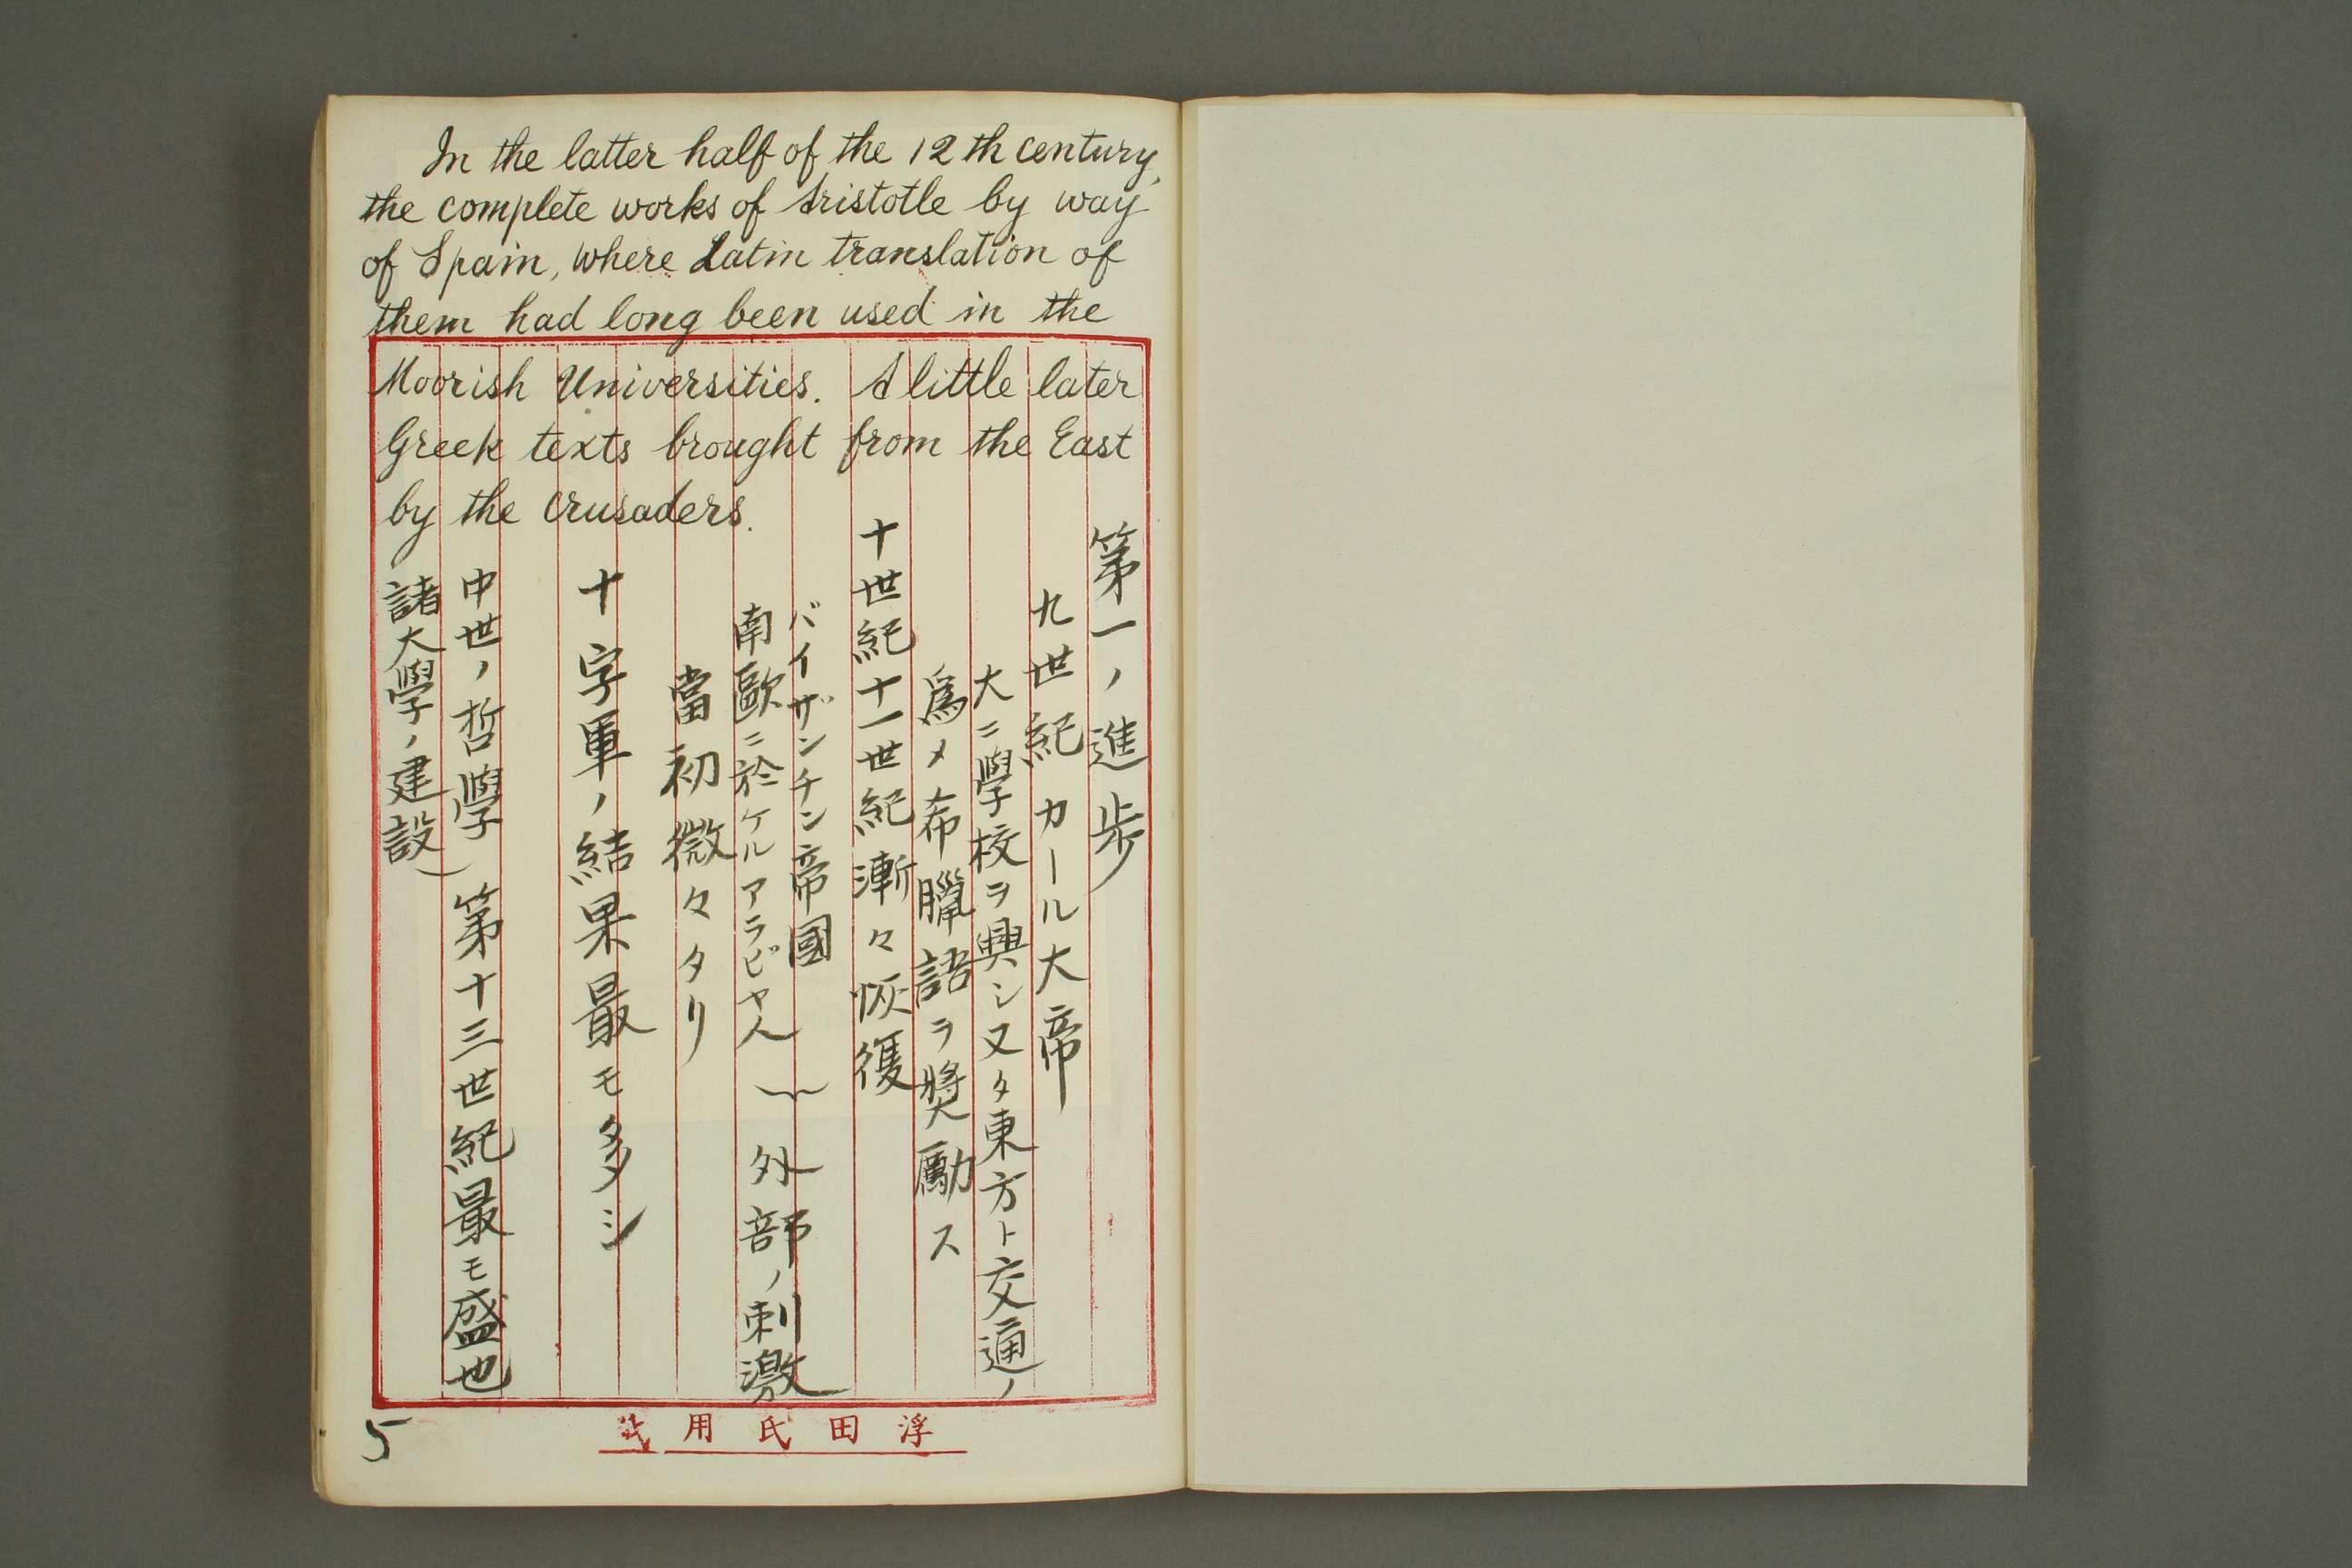 In the latter half of the 12th century,
the complete works of Aristotle by way
of Spain, where Latin translation of
them had long been used in the
Moorish Universities. A little later
Greek texts brought from the East
by the crusaders.
第一ノ進歩
九世紀カール大帝
大ニ學校ヲ興シ又タ東方ト交通ノ
爲メ希臘語ヲ奬勵ス
十世紀十一世紀漸々恢復
バイザンチン帝國
南歐ニ於ケルアラビヤ人
外部ノ刺激
當初微々タリ
十字軍ノ結果最モ多シ
中世ノ哲學
諸大學ノ建設
第十三世紀最モ盛也
浮田氏用
5